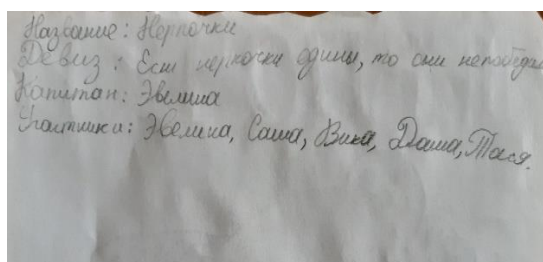 Название: Нерпочки
Девиз: Если нерпочки едины, то они непобедим
Капитан: Эвелина
Участники: Эвелина, Саша, Вика, Даша, Тася.